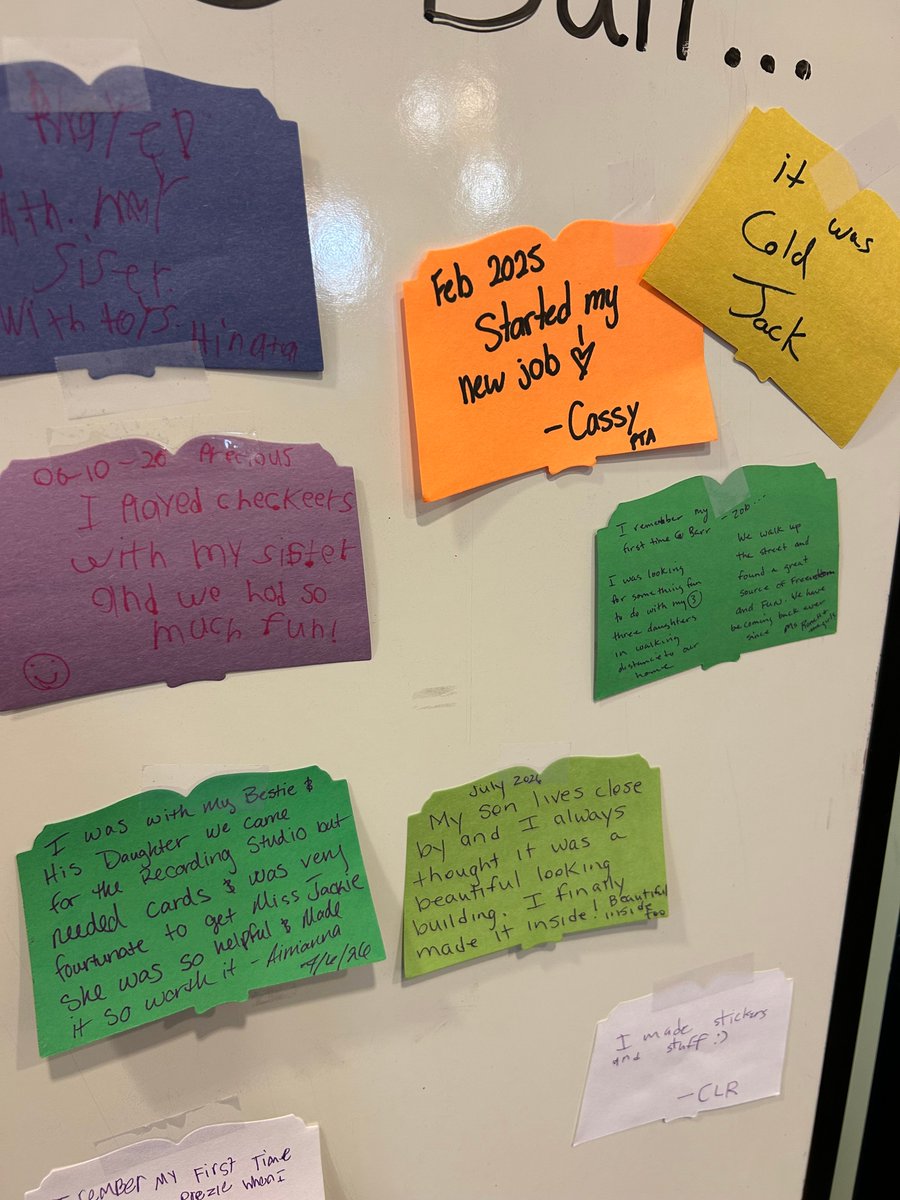 Barr...
PlayED
With. my
siser.
With toys.
Hinata
it was
Cold
Jack
Feb 2025
Started my
new job!
-Cassy
PTA
06-10-26 Precious
I Played checkeers
with my sister
and we had so
much fun!
I remember my
first time @ Barr
I was looking
for something fun
to do with my 3
three daughters
in walking
distance to our
home
We walk up
the street and
found a great
source of
and Fun. We have
becoming back ever
since Ms
I was with my Bestie &
His Daughter we came
for the Recording Studio but
needed cards & was very
fourtunate to get Miss Jackie
She was so helpful & Made
it so worth it - Aimanna
7/6/26
July 2026
My son lives close
by and I always
thought it was a
beautiful looking
building. I finally
made it inside! Beautiful
inside
too
I made stickers
and stuff :)
-CLR
I remember my First Time
when I